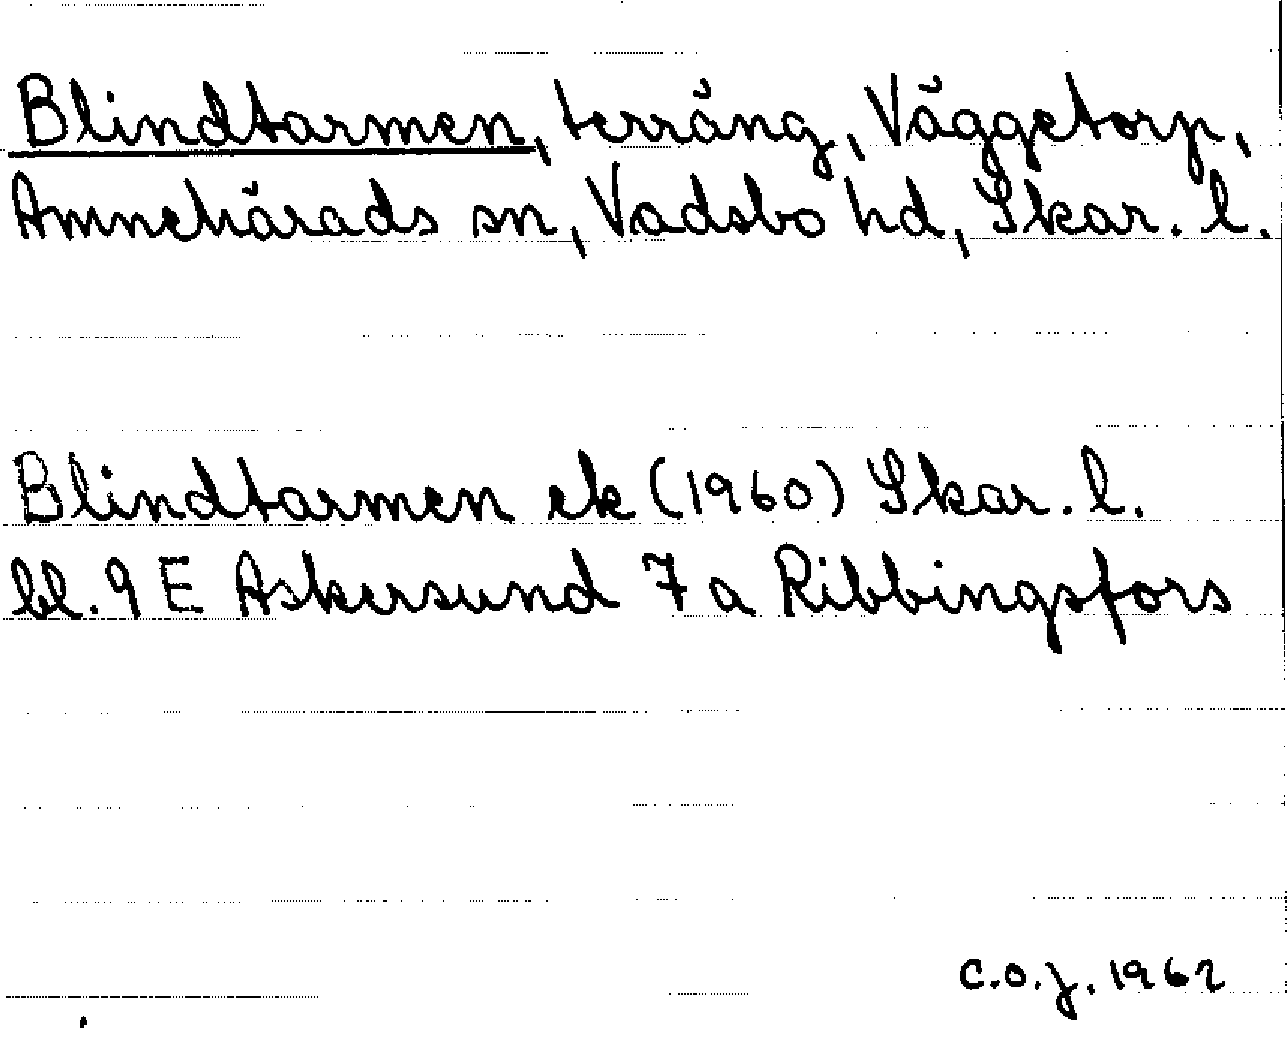 Blindtarmen, terräng, Väggetorp,
Amnehärads sn, Vadsbo hd, Skar. l.
Blindtarmen ek (1960) Skar. l.
bl. 9 E Askersund 7 a Ribbingsfors
C.O.J. 1962